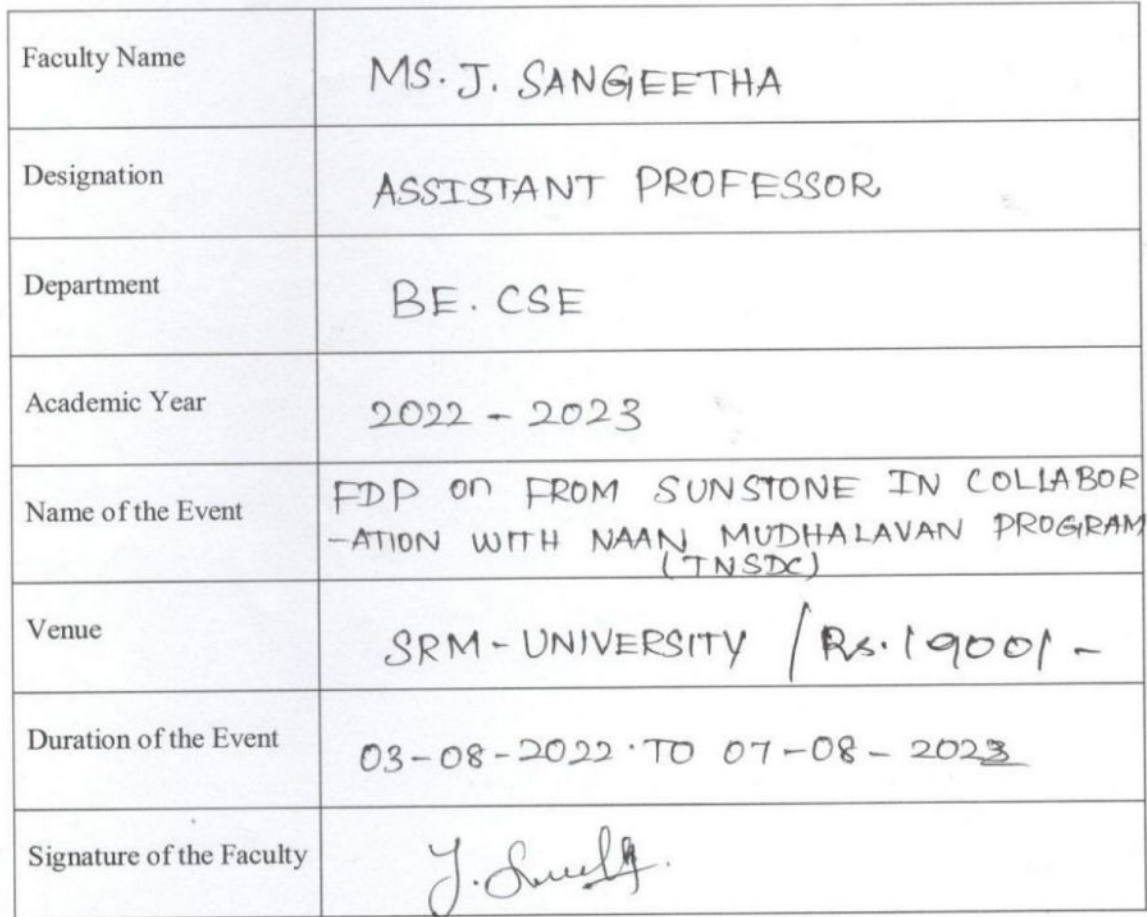 Faculty Name
MS. J. SANGEETHA
Designation
ASSISTANT PROFESSOR
Department
BE. CSE
Academic Year
2022 - 2023
Name of the Event
FDP on FROM SUNSTONE IN COLLABOR
-ATION WITH NAAN MUDHALAVAN PROGRAM
(TNSDC)
Venue
SRM - UNIVERSITY / Rs. 1900/-
Duration of the Event
03-08-2022 TO 07-08-2023
Signature of the Faculty